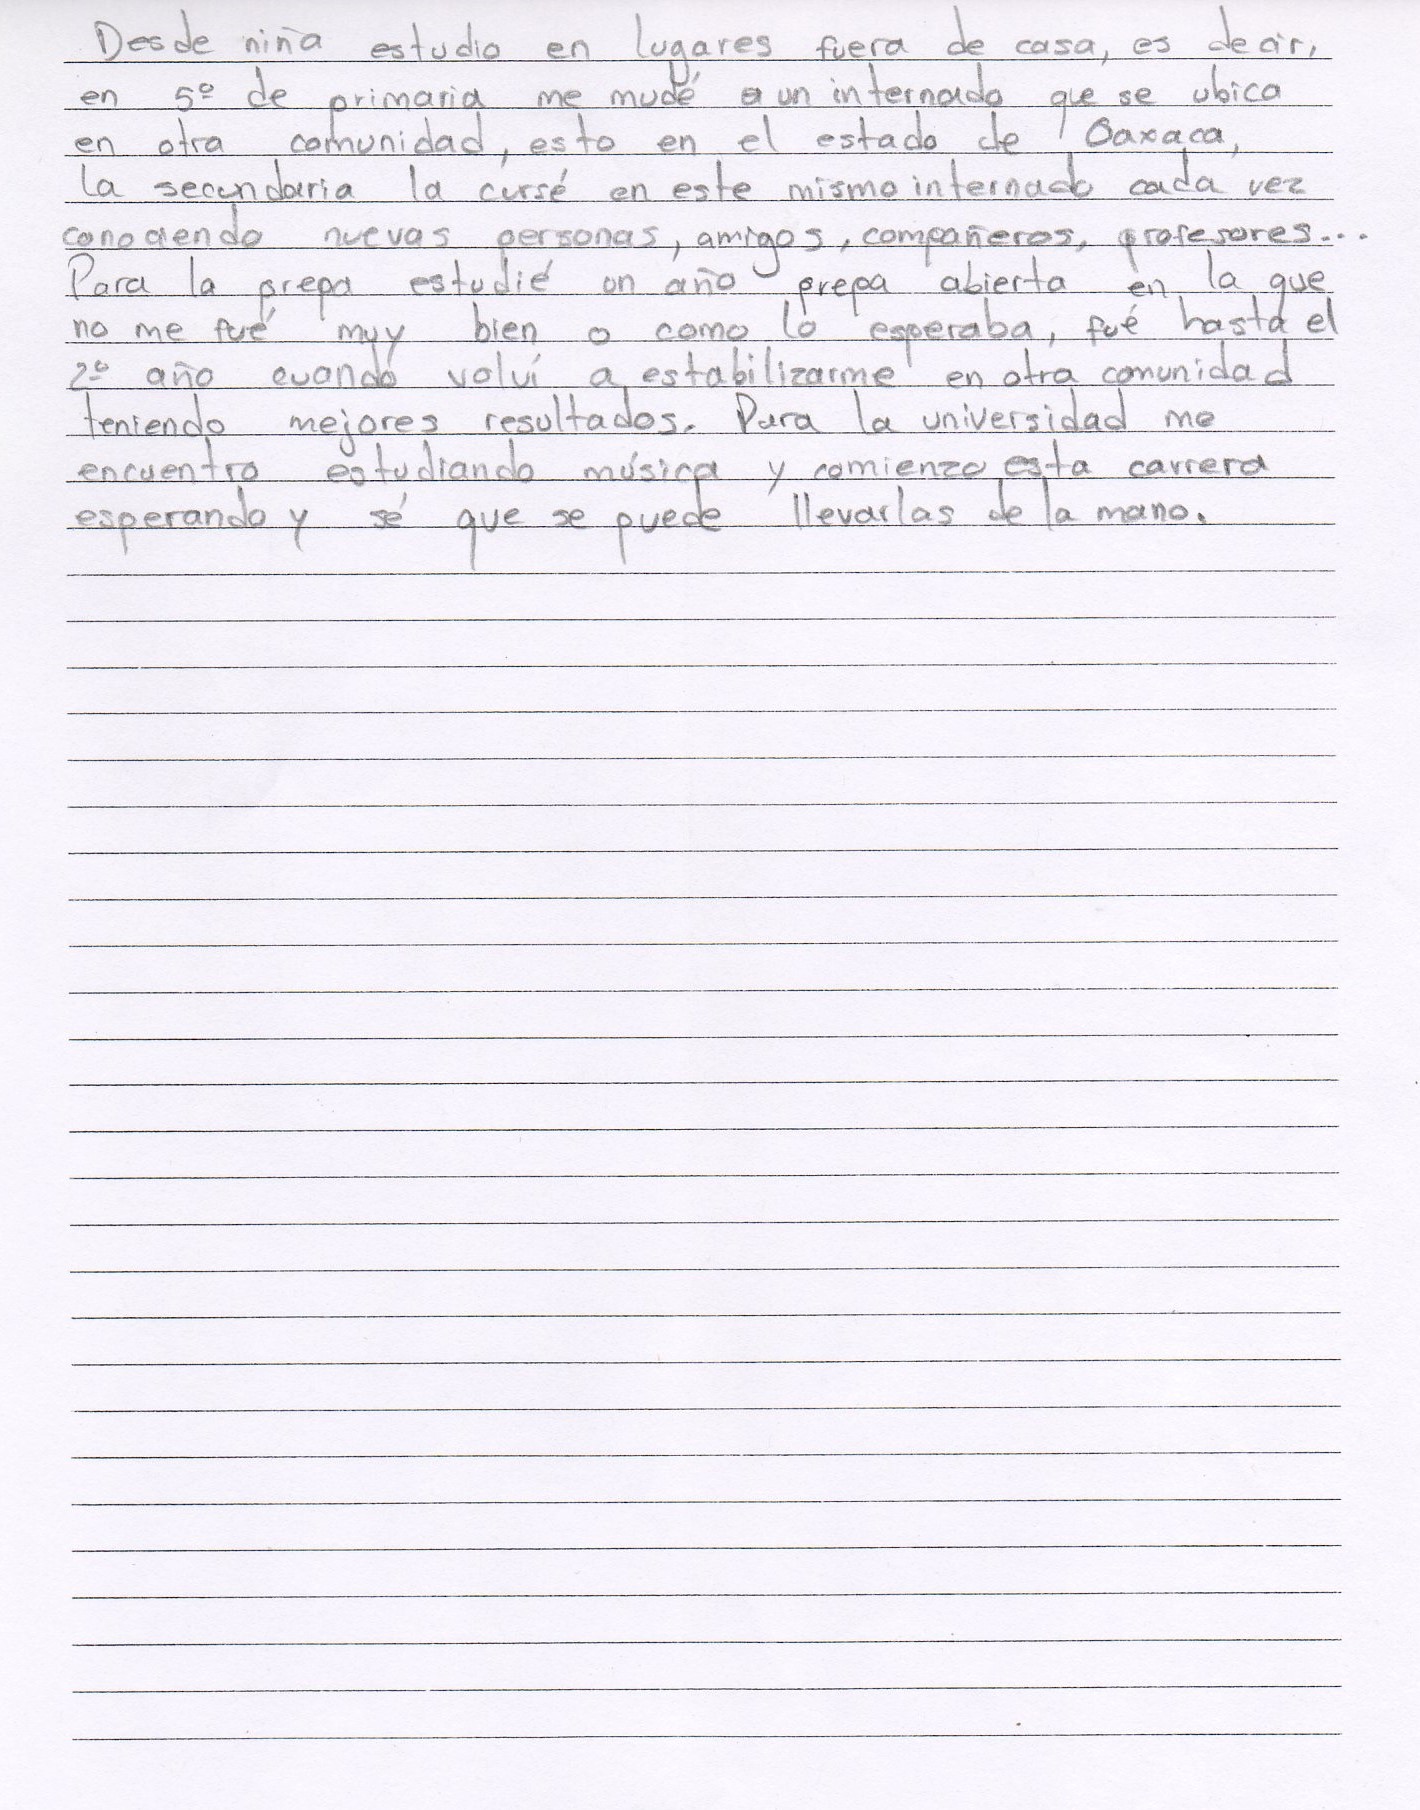 Desde niña estudio en lugares fuera de casa, es decir,
en 5º de primaria me mudé a un internado que se ubica
en otra comunidad, esto en el estado de Oaxaca,
La secundaria la cursé en este mismo internado cada vez
conociendo nuevas personas, amigos, compañeros, profesores...
Para la prepa estudié un año prepa abierta en la que
no me fué muy bien o como lo esperaba, fué hasta el
2º año cuando volví a estabilizarme en otra comunidad
teniendo mejores resultados. Para la universidad me
encuentro estudiando música y comienzo esta carrera
esperando y sé que se puede llevarlas de la mano.